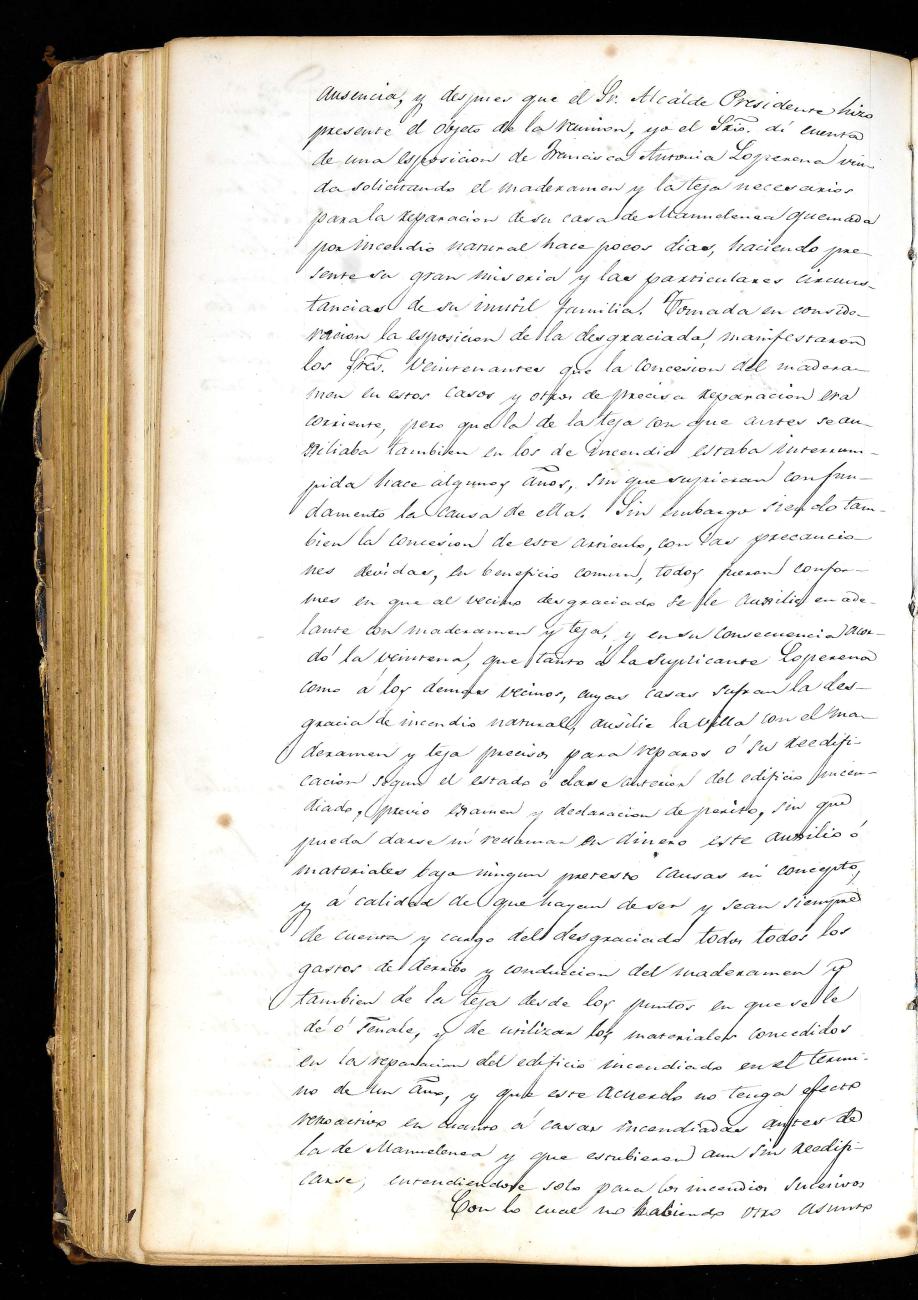 ausencia, y despues que el Sr. Alcálde Presidente hizo
presente el objeto de la reunion, yo el Srio. dí cuenta
de una esposicion de Francisca Antonia Loperena viu-
da solicitando el maderamen y la teja necesarios
para la reparacion de su casa de Manuelenea quemada
por incendio natural hace pocos dias, haciendo pre-
sente su gran miseria y las particulares circuns-
tancias de su inutil familia. Tomada en conside-
racion la esposicion de la desgraciada, manifestaron
los Sres. Veintenantes que la concesion del madera-
men en estos casos y otros de precisa reparacion era
corriente, pero que la de la teja con que antes se au-
siliaba tambien en los de incendio estaba interrum-
pida hace algunos años, sin que supieran con fun-
damento la causa de ella. Sin embargo siendo tam-
bien la concesion de este articulo, con las precaucio-
nes devidas, en beneficio comun, todos fueron confor-
mes en que al vecino desgraciado se le ausilie en ade-
lante con maderamen y teja, y en su consecuencia acor-
dó la veintena, que tanto á la suplicante Loperena
como á los demas vecinos, cuyas casas sufran la des-
gracia de incendio natural, ausilie la villa con el ma-
deramen y teja precisos para reparos ó su reedifi-
cacion segun el estado ó clase anterior del edificio incen-
diado, previo examen y declaracion de perito, sin que
pueda darse ni reclamar en dinero este auxilio ó
materiales bajo ningun pretesto causas ni concepto,
y á calidad de que hayan de ser y sean siempre
de cuenta y cargo del desgraciado todos todos los
gastos de derribo y conduccion del maderamen y
tambien de la teja desde los puntos en que se le
dé ó señale, y de utilizar los materiales concedidos
en la reparacion del edificio incendiado en el termi-
no de un año, y que este acuerdo no tenga efecto
retroactivo en cuanto á casas incendiadas antes de
la de Manuelenea y que estubieren aun sin reedifi-
carse, entendiendose solo para los incendios sucesivos
Con lo cual no habiendo otro asunto